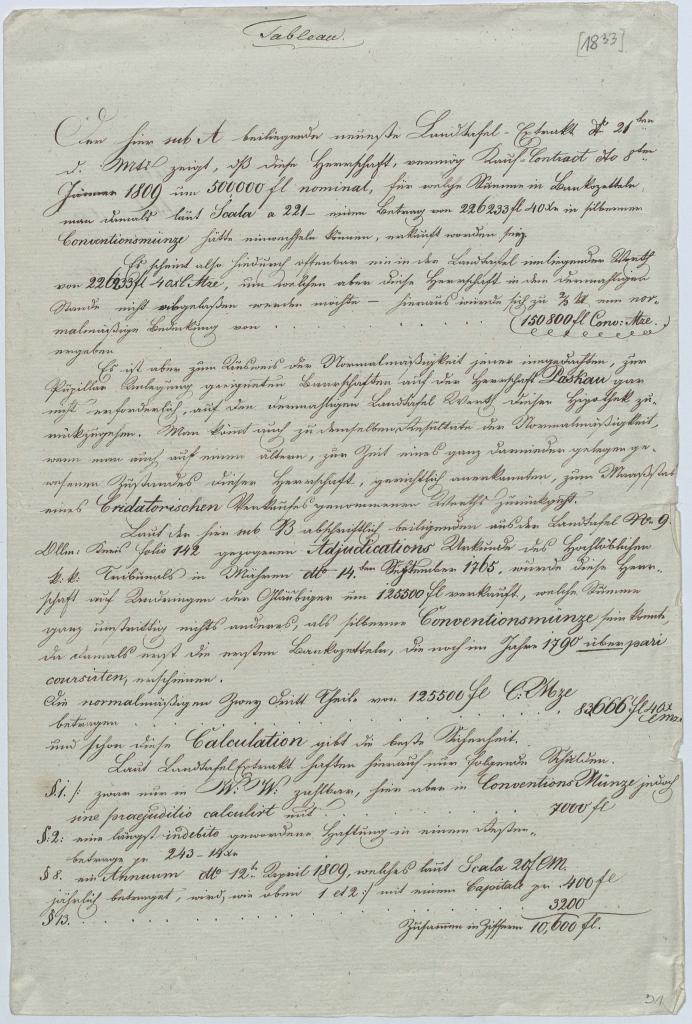 Tableau.
[1833]
Den hier sub A beiliegende neueste Landtafel-Extrakt dto 21ten
d. Mts zeigt, dß diese Herrschaft, vermög Kauf-Contract dto 8ten
Jänner 1809 um 500,000 fl nominal, für welche Summe in Bankozetteln
man damals laut Scala a 221 – einen Betrag von 226233 fl 40 xr in silberner
Conventionsmünze hätte einwechseln können, erkauft worden sey.
Es scheint also hiedurch offenbar ein in der Landtafel einliegender Werth
von 226233 fl 40 xr C. Mze, um welchen aber diese Herrschaft in dem dermahligen
Stande nicht abgelaßen werden möchte – hieraus würde sich zu 2/3 tl eine nor-
malmäßige Bedeckung von . . . . . (150800 fl Conv: Mze.)
ergeben
Es ist aber zum Ausweis der Normalmäßigkeit jener ingedachten, zur
Pupillar Anlegung geeigneten Baarschaften auf der Herrschaft Paskau gar
nicht erforderlich, auf den dermahligen Landtafel Werth dieser Hipothek zu-
rückzugehen. Man kömt auch zu demselben Resultate der Normalmäßigkeit,
wenn man auch auf einen ältern, zur Zeit eines ganz darnieder gelegen ge-
wesenen Zustandes dieser Herrschaft, gerichtlich anerkannten, zum Maaßstab
eines Cridatorischen Verkaufes genommenen Werths zurückgeht.
Laut der hier sub B abschriftlich beiliegenden aus der Landtafel No 9.
folio 142 gezogenen Adjudications Urkunde des Hochlöblichen
k: k: Tribunals in Mähren dto 14ten September 1765, wurde diese Herr-
schaft auf Andringen der Gläubiger um 125500 fl verkauft, welche Summe
ganz unstrittig nichts anderes, als silberne Conventionsmünze sein konnte,
da damals erst die ersten Bankozetteln, die noch im Jahre 1790 über pari
coursirten, erschienen.
Die normalmäßigen Zwey Dritt Theile von 125500 fl C: Mze
betragen . . . . . 83666 fl 40 xr CMz.
und schon diese Calculation gibt die beste Sicherheit.
Laut Landtafelextrakt haften hierauf nur folgende Schulden.
§: 1. /: zwar nur in W. W. zahlbar, hier aber in Conventions Münze jedoch
sine praejuditio calculirt mit . . . . . 7000 fl
§: 2: eine längst indebite gewordene Haftung in einem Resten-
betrage pr 243 – 14 xr
§ 8. ein Annuum dto 12t April 1809, welches laut Scala 20 fl CM.
jährlich betraget, wird, wie oben 1 et 2 :/ mit einem Capitale pr 400 fl
§ 13. . . . . . 3200
Zusammen in Ziffern 10,600 fl.
31